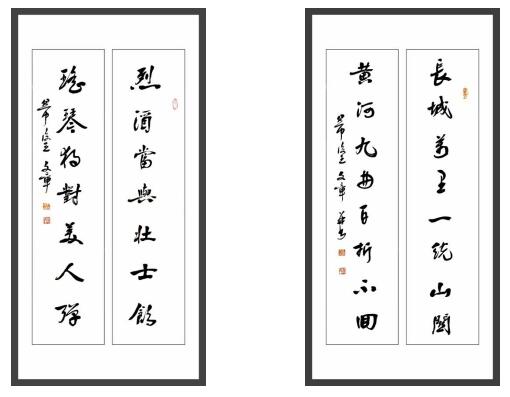 烈酒當與壯士飲
瑤琴獨對美人彈
長城萬里一統山關
黃河九曲百折不回